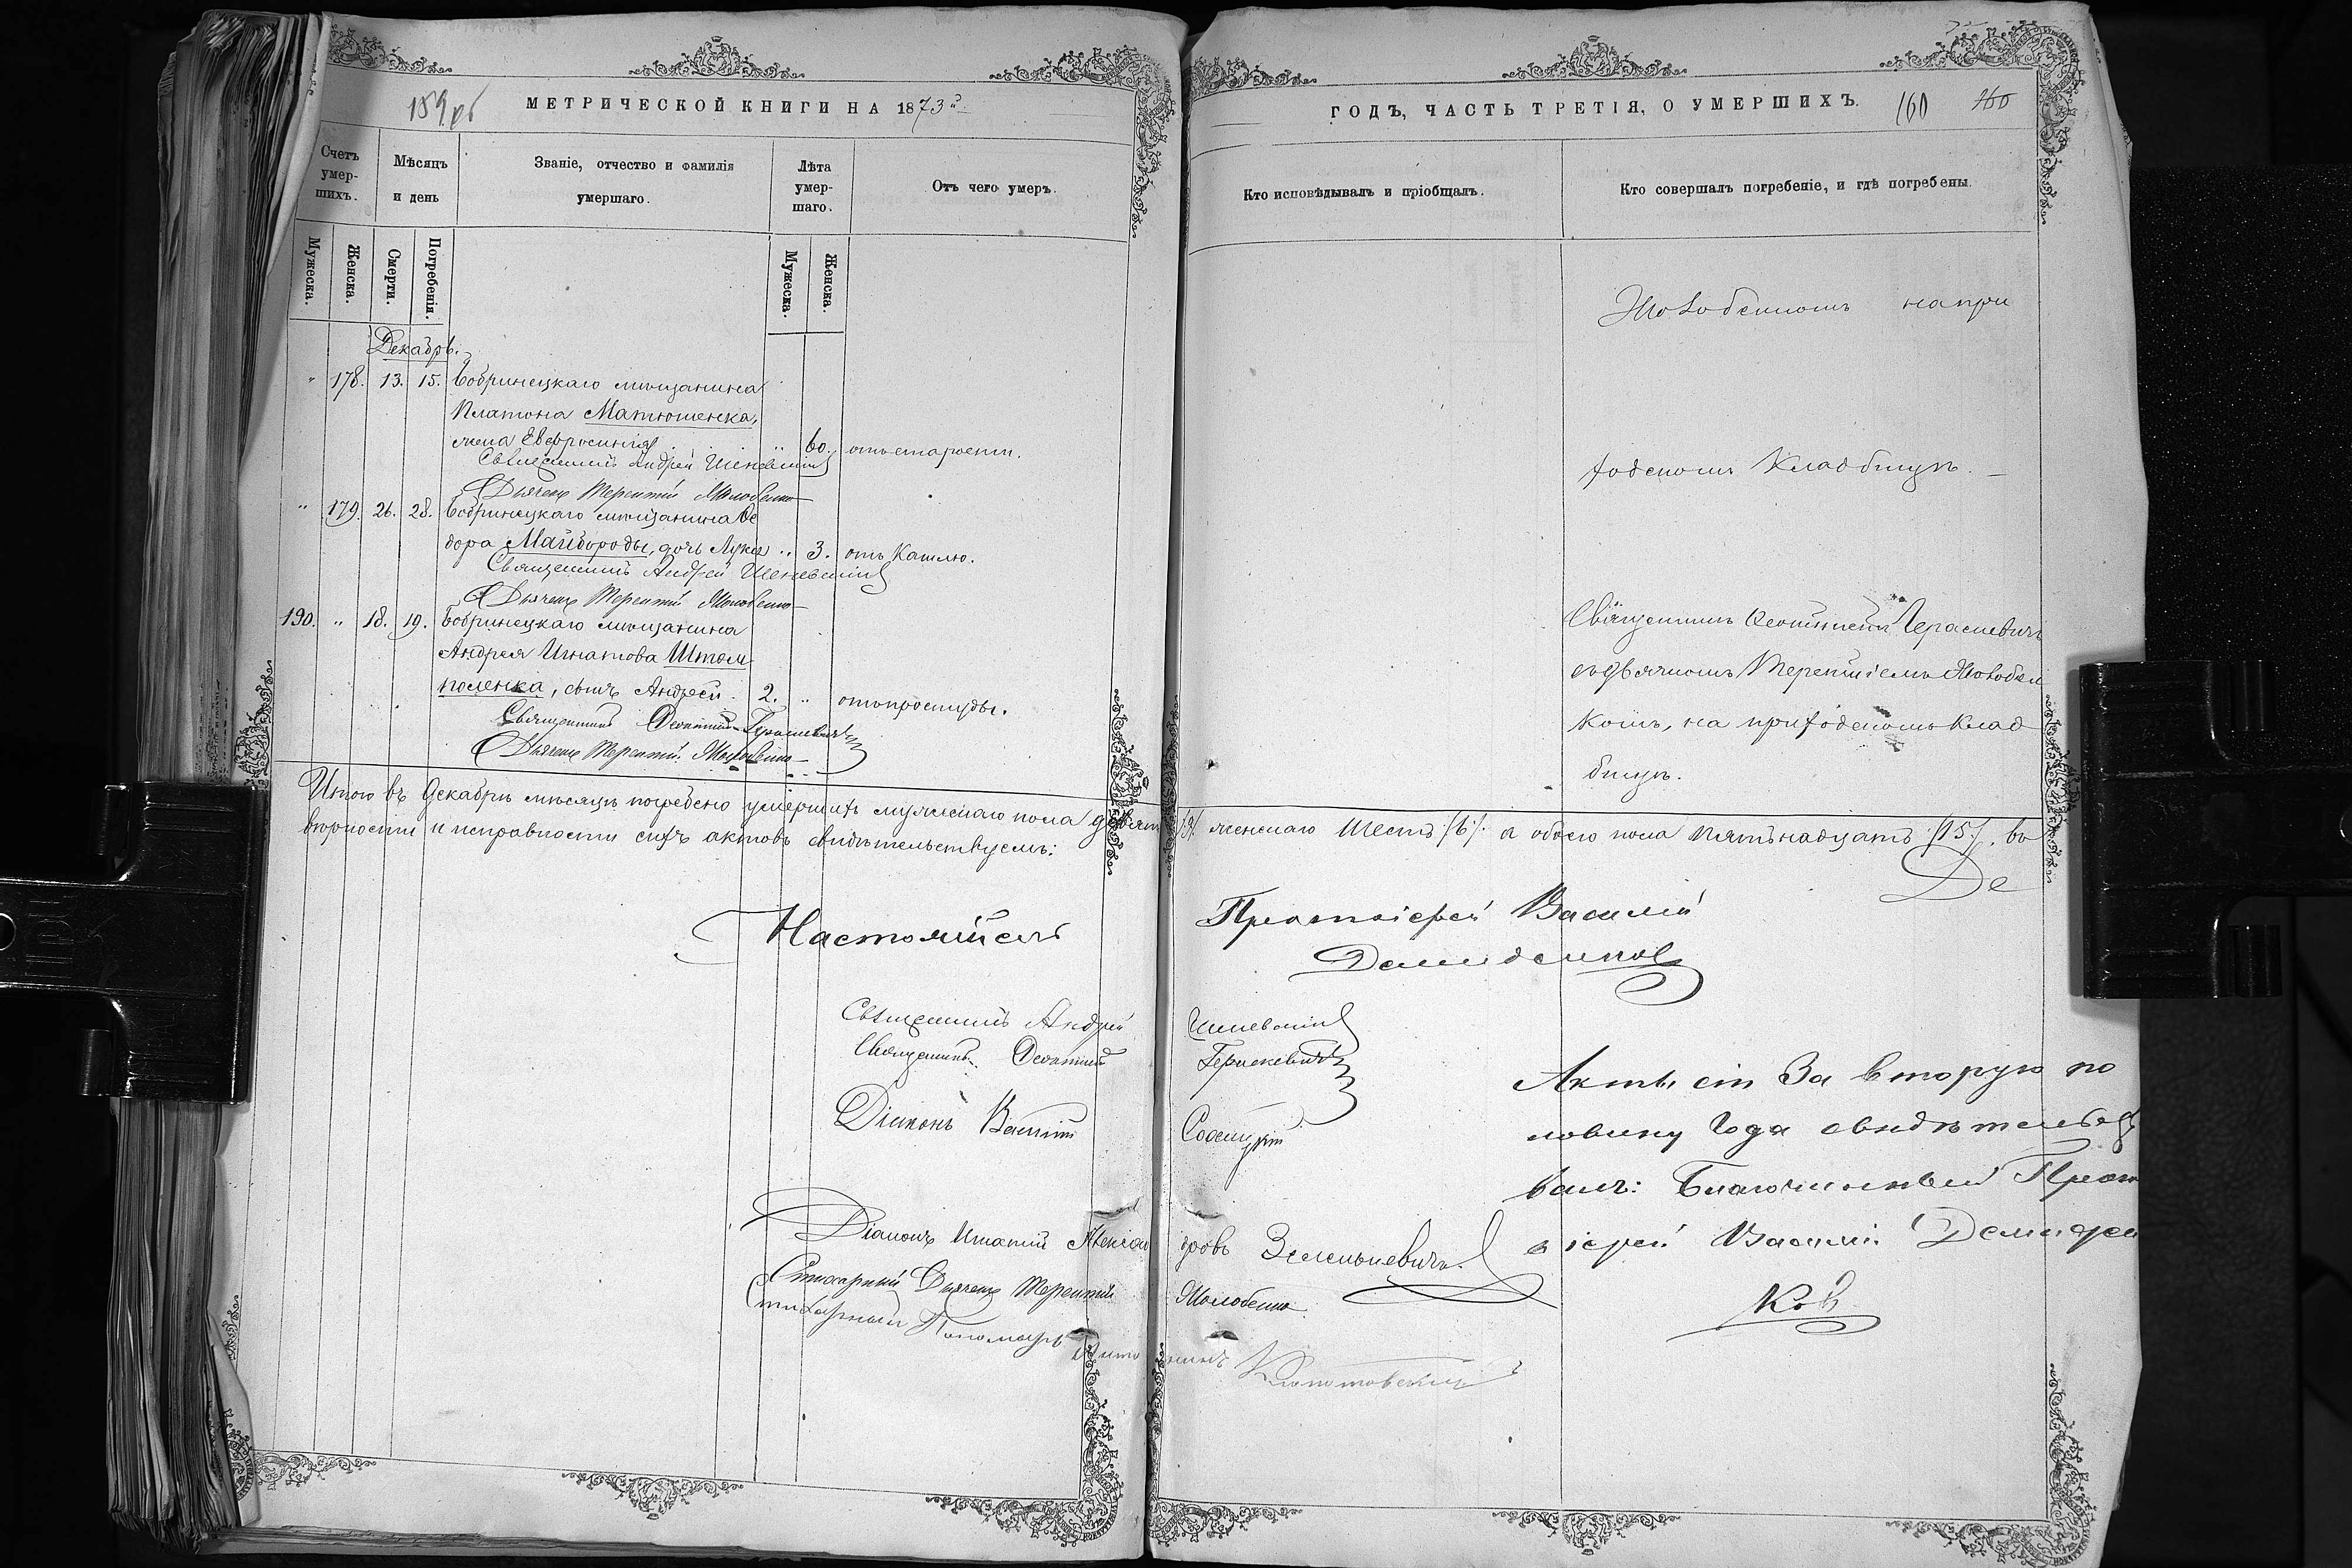 159 об МЕТРИЧЕСКОЙ КНИГИ НА 1873й
Счетъ умер-шихъ.
Мѣсяцъ и день
Званіе, отчество и фамилія умершаго.
Лѣта умер-шаго.
Отъ чего умеръ.
Мужеска.
Женска.
Смерти.
Погребенія.
Мужеска.
Женска.
Декабрь.
" 178. 13. 15. Бобринецкаго мѣщанина
Платона Матюшенка,
жена Евфросинія " 60. отъ старости.
Священникъ Андрей
Дьячекъ Терентій
" 179. 26. 28. Бобринецкаго мѣщанина Ѳе
дора Майбороды, дочь " 3. отъ Кашлю.
Священникъ Андрей
Дьячекъ Терентій
190. " 18. 19. Бобринецкаго мѣщанина
Андрея Игнатова Штом
поленка, сынъ Андрей 2. " отъ простуды.
Священникъ Леонтій Гераневичъ
Дьячекъ Терентій
ГОДЪ, ЧАСТЬ ТРЕТІЯ, О УМЕРШИХЪ. 160 160
Кто исповѣдывалъ и пріобщалъ.
Кто совершалъ погребеніе, и гдѣ погребены.
на при
ходскомъ Кладбищѣ.
Священникъ
съ дьячкомъ Терентіемъ
комъ, на приходскомъ Клад
бищѣ.
Итого въ Декабрѣ мѣсяцѣ погребено умершихъ мужескаго пола девять /9/ женскаго шесть /6/. а обоего пола пятьнадцать /15/. въ
вѣрности и исправности сихъ актовъ свидѣтельствуемъ:
Де
Настоятель Протоіерей Василій
Демидениковъ
Священникъ Андрей
Священникъ Леонтій
Діаконъ Василій
Діаконъ Игнатій Александровъ Зелинкевичъ
Стихарный Дьячекъ Терентій
Стихарный Пономарь
Акты сіи За вторую по
ловину Года свидѣтельство
валъ: Благочинный Прот
оіерей Василій
ковъ